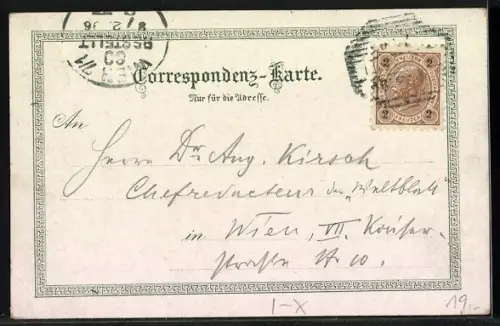 8/2 96
BESTELLT
WIEN 7/1
Correspondenz-Karte.
Nur für die Adresse.
2 KREUZER 2
2 KREUZER 2
An
Herrn Dr Aug. Kirsch
Chefredacteur des „Weltblatt"
in Wien, VII. Kaiser-
straße No 10.
I-X
19.-